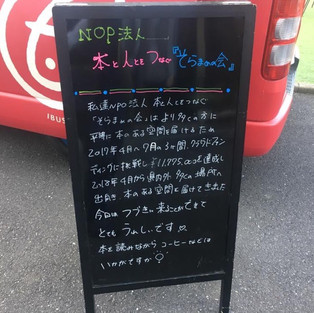 NOP法人
本と人とをつなぐ『そらまめの会』
私達NPO法人 本と人とをつなぐ
「そらまめの会」は より多くの方に
平等に 本のある空間を届けるため
2017年4月〜7月の3ヶ月間、クラウドファン
ディングに挑戦し ¥11,775,000を達成し
2018年4月から県内外 多くの場所へ
出向き 本のある空間を届けてきました
今日は つづきに来ることができて
とても うれしいです
本を読みながら コーヒーなどは
いかがですか
IBUS